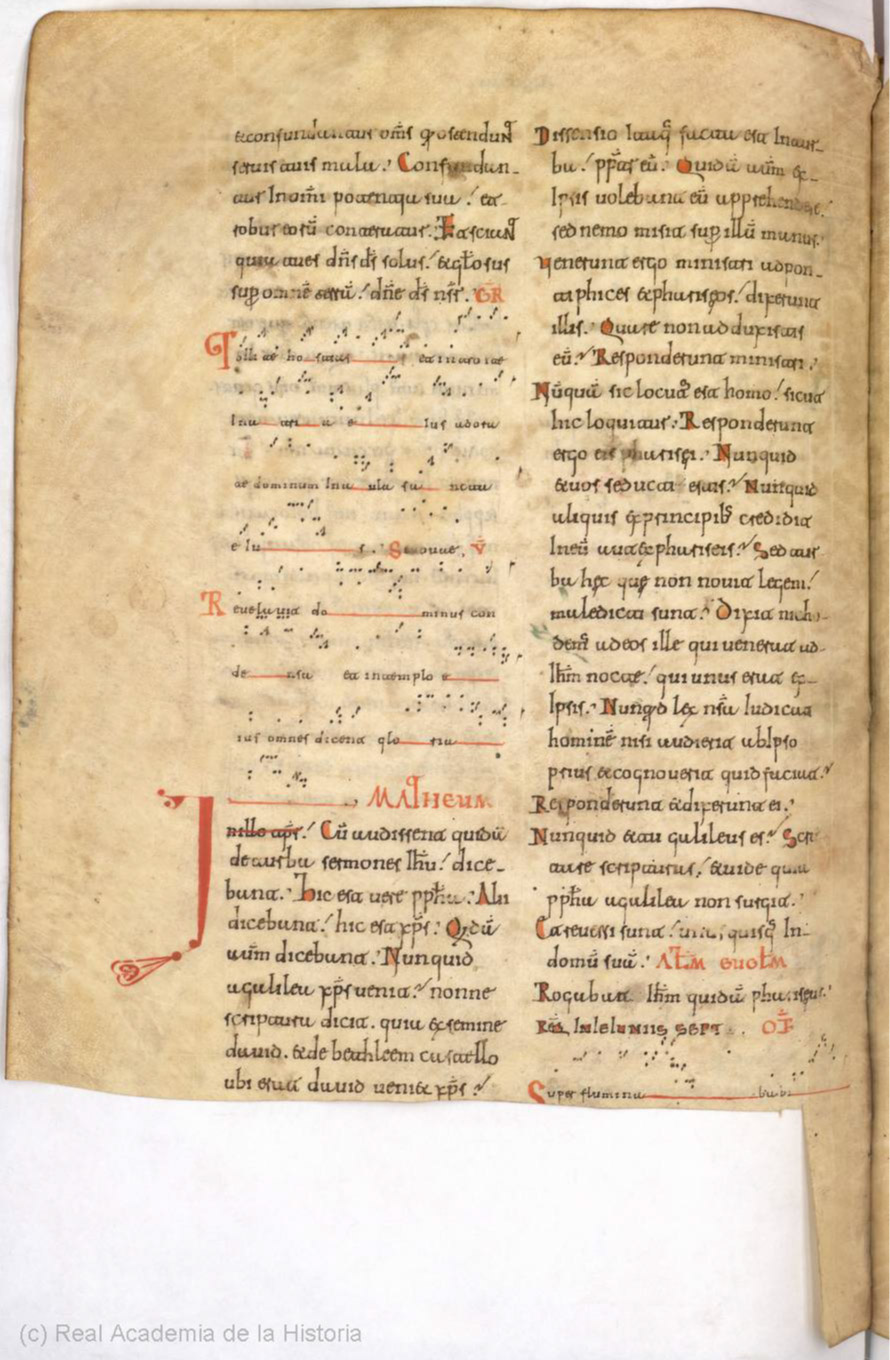 &confundantur om̄s q̄ ostendunt
seruis tuis mala. Confundan-
tur In om̄i potentia sua / et
robur eorū conteratur. Et sciant
quia tu es dn̄s ds̄ solus / & gl̄osus
sup omnē terrā / dn̄e ds̄ nr̄. GR̄
Tollite hostias et introite
In atria eius adora
te dominum In aula sancta
eius. Seuouae. V̄
Reuelauit dominus con
densa et in templo e
ius omnes dicent gloria
MATHEUM
In illo tp̄r / Cū audissent quidā
de turba sermones Ihū / dice-
bant. Hic est uere pp̄ha. Alii
dicebant / hic est xp̄s. Qdā
aut̄m dicebant. Nunquid
a galilea xp̄s uenit. nonne
scriptura dicit. quia ex semine
dauid. & de bethleem castello
ubi erat dauid uenit xp̄s
Dissensio itaq̄ facta est In tur-
ba / pp̄ter eū. Quidā aut̄m ex
Ipsis uolebant eū apprehendere
sed nemo misit sup illū manus.
Uenerunt ergo ministri ad pon-
tiphices & phariseos / dixerunt
illis. Quare non adduxistis
eū. Responderunt ministri.
Nūquā sic locut᷒ est homo / sicut
hic loquitur. Responderunt
ergo eis pharisei. Nunquid
& uos seducti estis. Nunquid
aliquis ex principib᷒ credidit
In eū aut ex phariseis. Sed tur
ba hęc quę non nouit legem /
maledicti sunt. Dixit nicho-
dem᷒ ad eos ille qui uenerat ad
Ih̄m nocte / qui unus erat ex
Ipsis. Nunqd lex nr̄a Iudicat
hominē nisi audierit ab Ipso
prius & cognouerit quid faciat.
Responderunt & dixerunt ei.
Nunquid & tu galileus es. Scru
tare scripturas / & uide quia
pp̄ha a galilea non surgit.
Et reuersi sunt / unusquisq̄ In
domū suā. ALT̄M EUGL̄M
Rogabat Ih̄m quidā phariseus.
REQ̄ In IeIuniis SEPT. OF̄
Super flumina babi
(c) Real Academia de la Historia